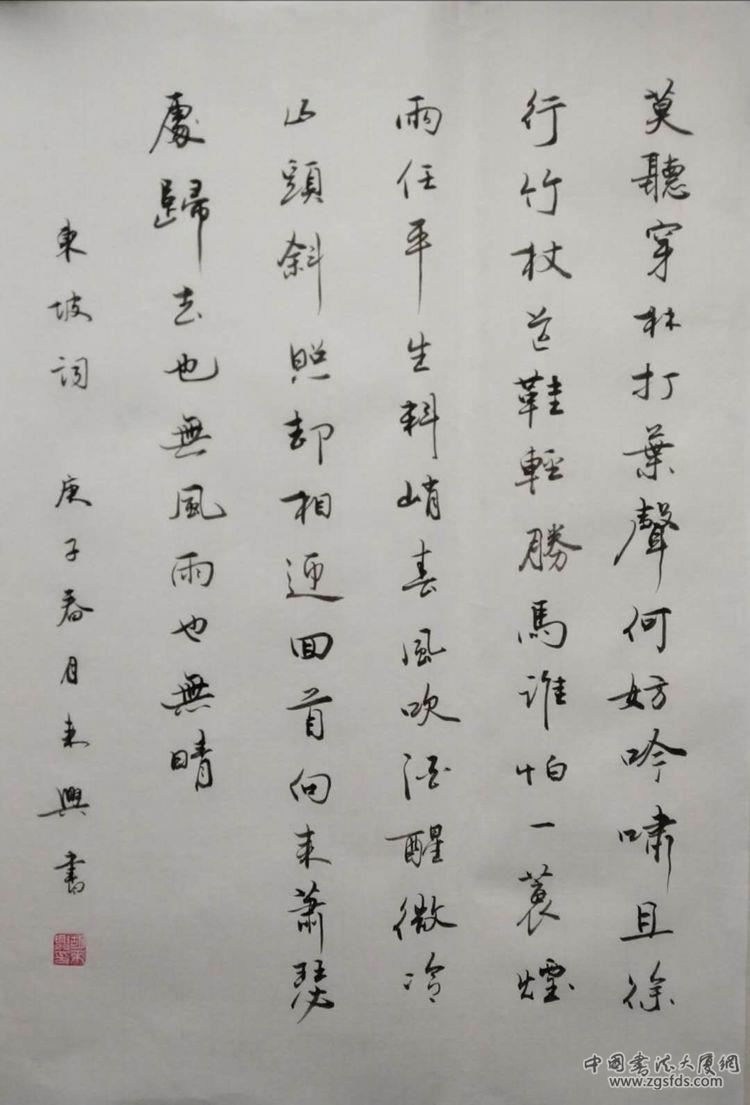 莫聽穿林打葉聲何妨吟嘯且徐
行竹杖芒鞋輕勝馬誰怕一蓑煙
雨任平生料峭春風吹酒醒微冷
山頭斜照却相迎回首向來蕭瑟
處歸去也無風雨也無晴
東坡詞 庚子春月來興書
中国书法大厦網
www.zgsfds.com